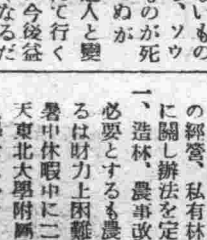 いもの
、ソウ
ものが死
ぬが
人と變
て行く
今後益
なるだ
の經營、私有林
に關し辦法を定
一、造林、農事改
必要とするも農
るは財力上困難
暑中休暇中に二
天東北大學附屬